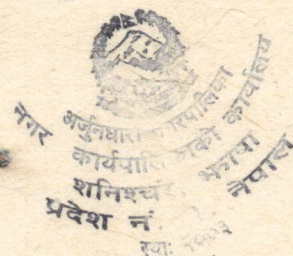 अर्जुनधारा नगरपालिका
नगर कार्यपालिकाको कार्यालय
शनिश्चरे झापा
प्रदेश नं. नेपाल
स्था: